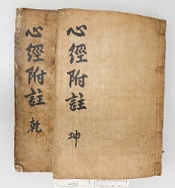 心經附註 坤
心經附註 乾